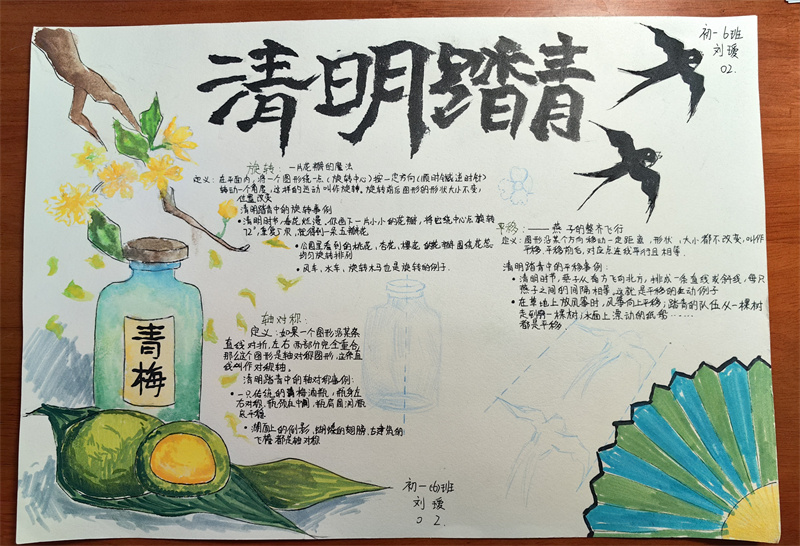 清明踏青
初一6班
刘瑷
02.
旋转：一片花瓣的魔法
定义：在平面内，将一个图形绕一点(旋转中心)按一定方向(顺时针或逆时针)
转动一个角度，这样的运动叫作旋转。旋转前后图形的形状大小不变，
位置改变
清明踏青中的旋转事例
•清明时节，春花烂漫，你画下一片小小的花瓣，将它绕中心点旋转
72°，重复5次，就得到一朵五瓣花
•公园里看到的桃花，杏花，樱花
均匀旋转排列
•风车，水车，旋转木马也是旋转的例子.
平移：——燕子的整齐飞行
定义：图形沿某个方向移动一定距离，形状，大小都不改变，叫作
平移.平移前后，对应点连线平行且相等.
清明踏青中的平移事例：
•清明时节，燕子从南方飞向北方，排成一条直线或斜线，每只
燕子之间的间隔相等，这就是平移的生动例子
•在草地上放风筝时，风筝向上平移；踏青的队伍从一棵树
走到另一棵树；水面上漂动的纸船……
都是平移
轴对称：
定义：如果一个图形沿某条
直线对折，左右两部分完全重合，
那么这个图形是轴对称图形，这条直
线叫作对称轴.
清明踏青中的轴对称事例：
•一只传统的青梅酒瓶，瓶身左
右对称，瓶颈在中间，瓶肩
•湖面上的倒影，蝴蝶的翅膀，古建筑的
飞檐都是轴对称
青梅
初一(6)班
刘瑷
02.